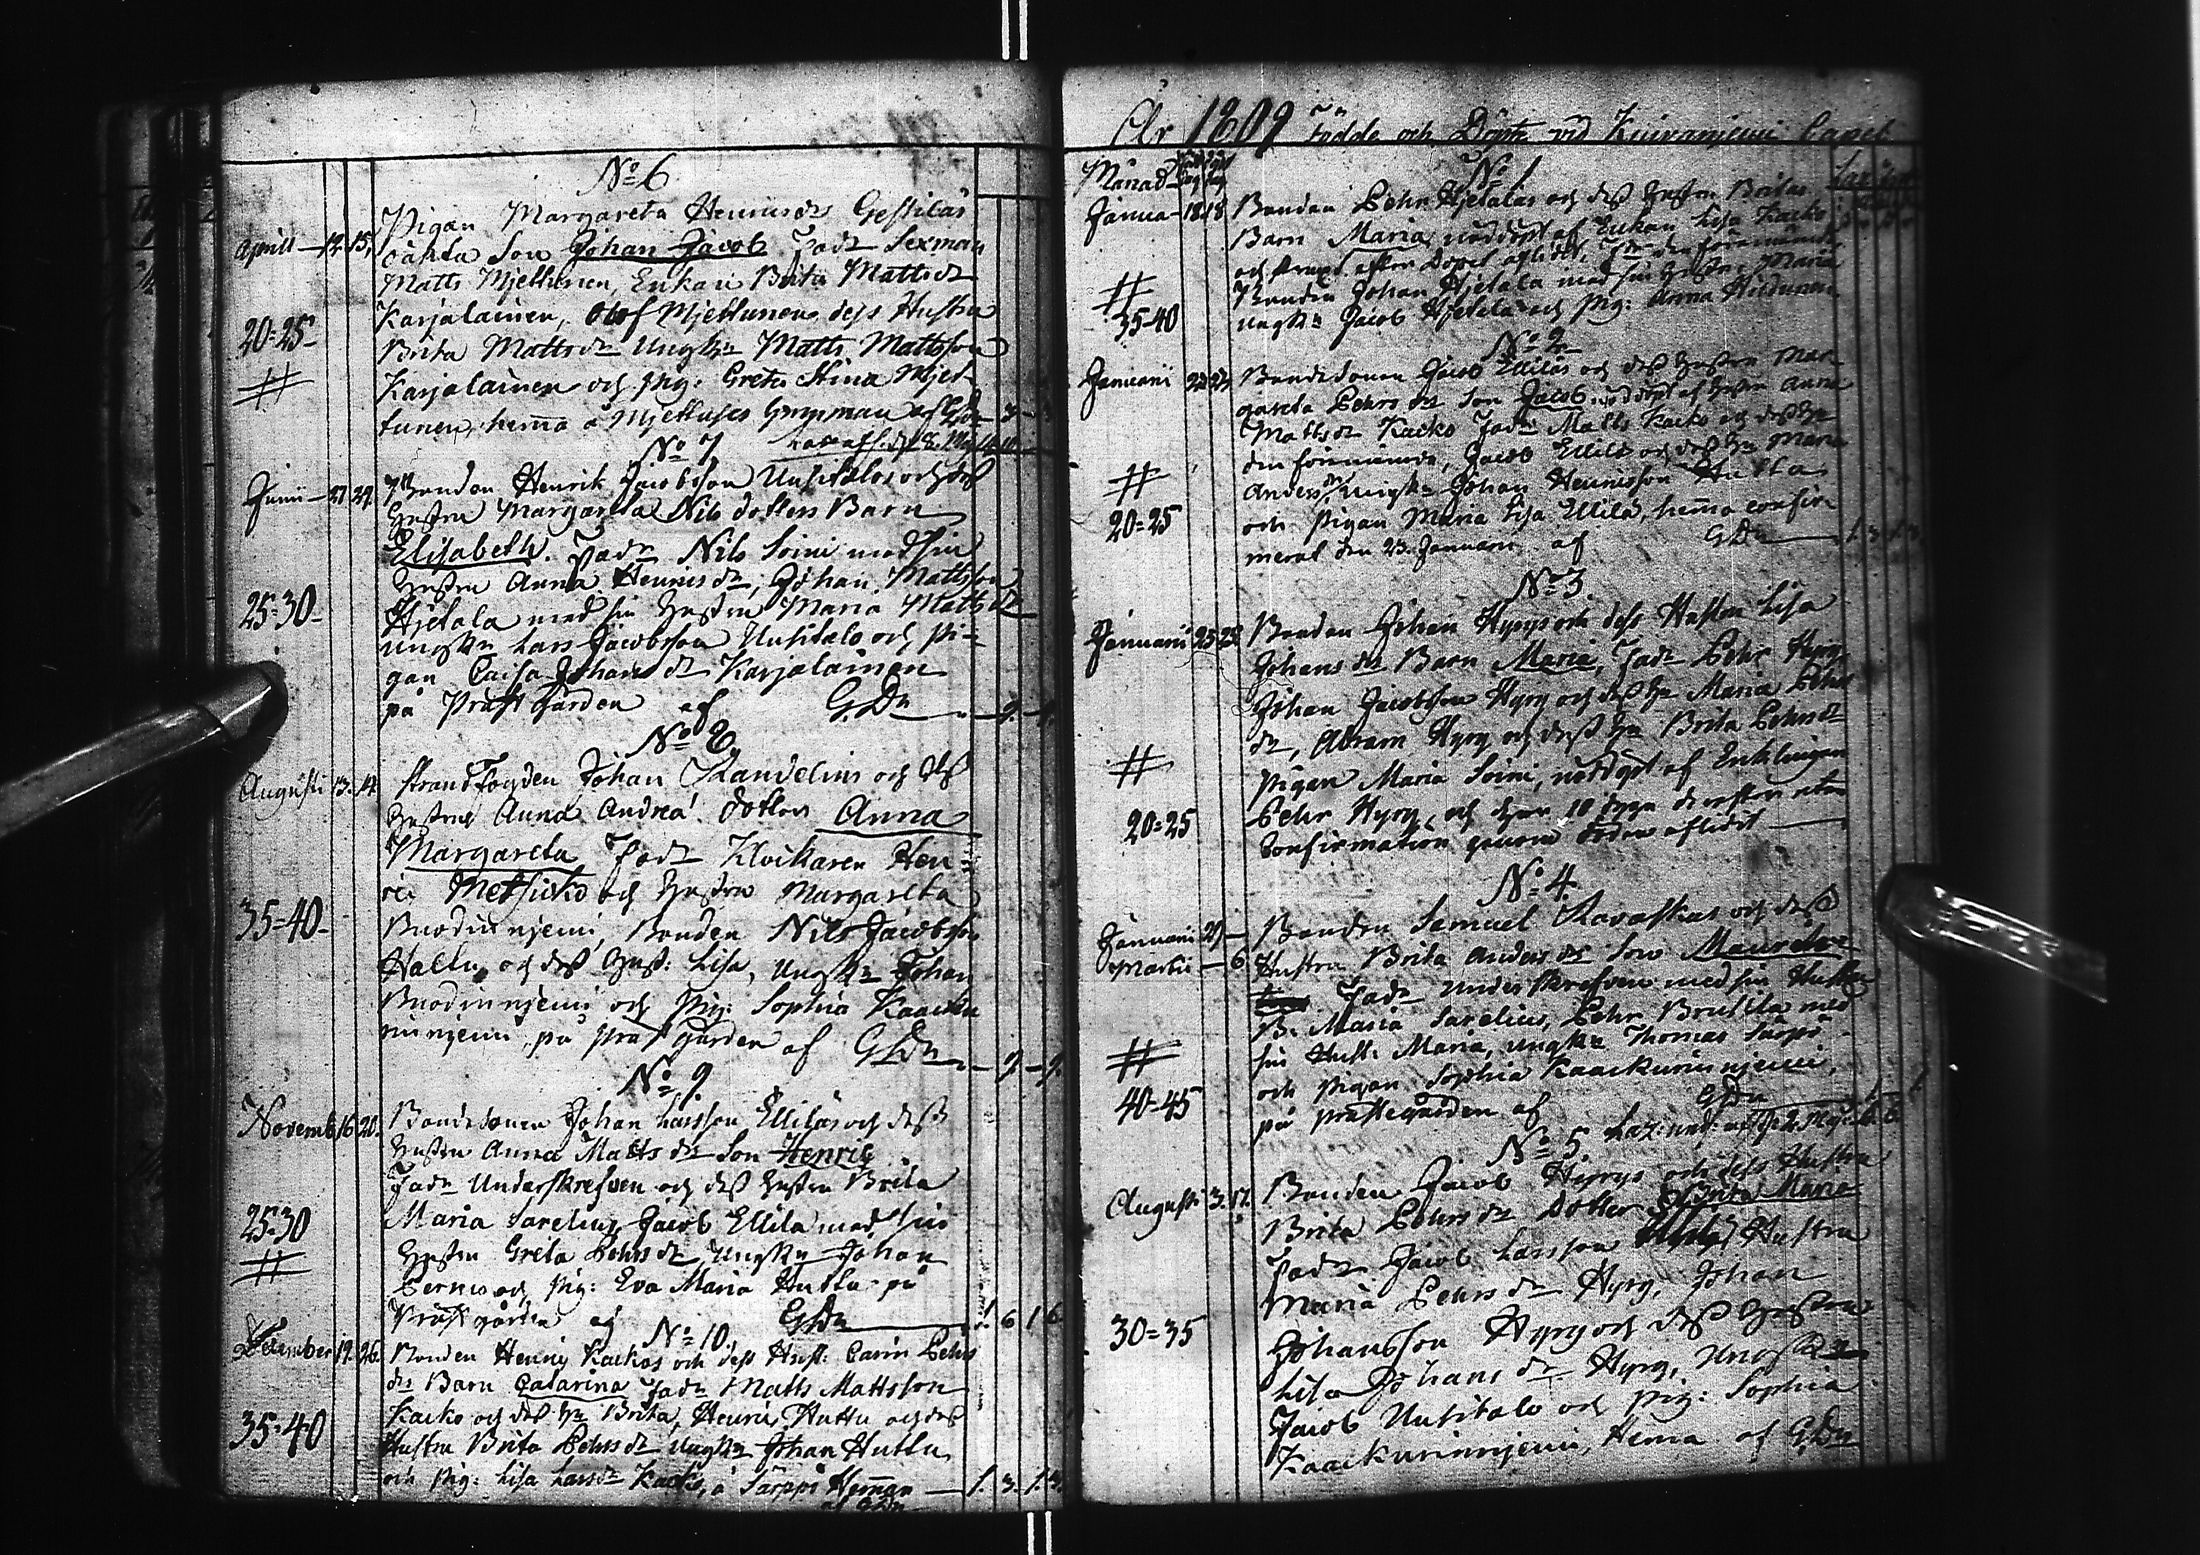 No 6
Aprill 12. 15. Pigan Margareta Henricsdr Gestiläs
oäkta Son Johan Jacob Fadr Sexman
Matts Mjettunen, Enkan Brita Mattsdr
20=25 Karjalainen, Olof Mjettunen dess Hustru
Brita Mattsdr Ungkn Matts Mattsson
# Karjalainen och pig: Greta Stina Mjet-
tunen, hema å Mjettuses af GDn
No 7
Junii 27 29. Bonden Henrik Jacobsson Uusitalos och dess
Hustru Margareta Nils dotters Barn
Elisabeth. Fadr Nils Soini med sin
Hustru Anna Henricsdr, Johan Mattsson
25=30 Hjetala med sin Hustru Maria Mattsdr
ungkn Lars Jacobsson Uusitalo och pi-
gan Caisa Johansdr Karjalainen
på Prästgården af GDn
No 8
Augusti 13. 14. Strand Fogden Johan Randelins och dess
Hustrus Anna Andreæ dotter Anna
Margareta Fadr Klockaren Hen-
ric och Hustru Margareta
35=40 Bonden Nils Jacobsson
Hallu, och dess Hust: Lisa, Ungkn Johan
och pig: Sophia Kaacku
rinnjemi, på prästgården af GDn 9 9
No 9
Novemb 16 20. Bondesonen Johan Larsson Ellilas och dess
Hustru Anna Mattsdr Son Henric
Fadr Underskrefven och dess Hustru Brita
25=30 Maria Sarelius, Jacob Ellila med sin
# Hustru Greta Pehrsdr, Ungkn Johan
och pig: Eva Maria Huttu på
Prästgården af GDn 1 6 1 6
No 10
December 19. 26. Bonden Henric Kackos och dess Hust: Carin Pehrs
dr Barn Catarina Fadr Matts Mattsson
Kacko och dess Hu Brita, Henric Huttu och dess
35=40 Hustru Brita Pehrsdr Ungkn Johan Huttu
och pig: Lisa Larsdr Kacko, å Särppi Heman 1. 3. 1. 3.
af GDn
År 1809 Födde och Döpte vid Kuivanjemi Capel
Månad No 1
Janua 18 18 Bonden Pehr Hjetalas och dess Hustru Britas
Barn Maria, nöddöpt af Enkan Lisa Kacko
och strax efter Döpet aflidet, Fdr den förenämnde
# Bonden Johan Hjetala med sin Hustru Maria
35-40 ungkn Jacob Hjetala och pig: Anna
No 2
Januarii 22 23 Bondesonen Jacob Ellilas och dess Hustru Mar-
gareta Pehrsdr Son Jacob nöddöpt af Hustru Anna
Mattsdr Kacko Fadr Matts Kacko och dess Hu
den förenämnde, Jacob Ellilä och dess Hu Maria
# Andersdr, ungkn Johan Henricsson Huttu
20=25 och pigan Maria Lisa Ellilä, hema confir-
merat den 23 Januarii af GDn 1. 3. 1. 3.
No 3.
Januarii 25 25 Bonden Johan Hyrys och dess Hustru Lisa
Johansdr Barn Maria, Fadr Pehr Hyry
Johan Jacobsson Hyry och dess Hu Maria Pehrs
dr, Abram Hyry och dess Hu Brita Pehrsdr
# pigan Maria Soini, nöddöpt af Enklingen
20=25 Pehr Hyry, och 10 dygn derefter utan
Confirmation genom döden aflidit
No 4.
Januarii 29 Bonden Samuel Ravaskas och dess
Martii 6 Hustru Brita Andersdr Son
Fadr Underskrefven med sin Hustru
B: Maria Sarelius, Pehr med
# sin Hust: Maria, ungkn Thomas Särpi
40=45 och pigan Sophia Kaackurinnjemi,
på prästegården af GDn
No 5
Augusti 3. 17. Bonden Jacob Hyrys och dess Hustru
Brita Pehrsdr Dotter Brita Maria
Fadr Jacob Larsson Hustru
Maria Pehrsdr Hyry, Johan
30=35 Johansson Hyry och dess Hustru
Lisa Johansdr Hyry, Ungkn
Jacob Uusitalo och pig: Sophia
Kaackurinnjemi, Hema af GDn